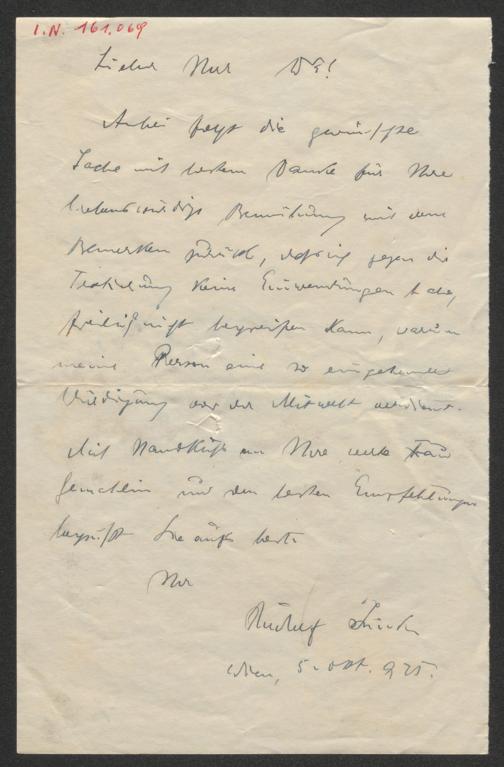 I.N. 161.069
Lieber Herr Dr!
Anbei folgt die gewünschte
Sache mit bestem Danke für Ihre
liebenswürdige Bemühung mit dem
Bemerken zurück, daß ich gegen die
keine Einwendungen habe,
freilich nicht begreifen kann, warum
meine Person eine so eingehende
Würdigung vor der Mitwelt verdient.
Mit Handkuß an Ihre werte Frau
Gemahlin und den besten Empfehlungen
begrüßt Sie aufs beste
Ihr
Rudolf
Wien, 5. Okt. 925.